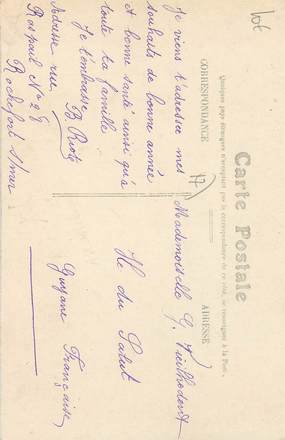 Carte Postale
Quelques pays étrangers n'acceptent pas la correspondance de ce côté, se renseigner à la Poste.
CORRESPONDANCE
ADRESSE
10€
17
Je viens t'adresser mes
souhaits de bonne année
et bonne santé ainsi qu'à
toute ta famille
Je t'embrasse
B.
Adresse rue
Raspail No 28
Rochefort s/mer
Mademoiselle G.
Ile du Salut
Guyane Française